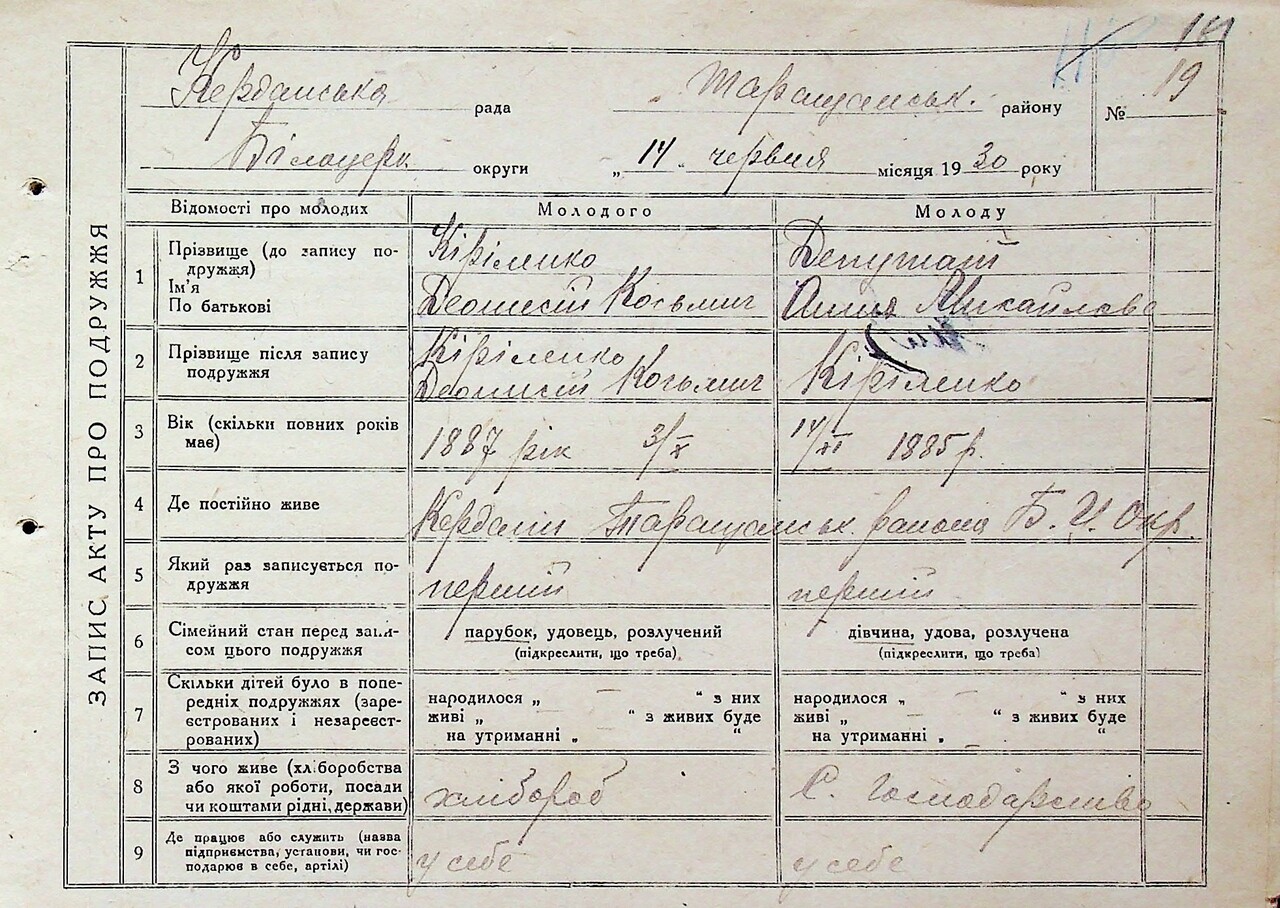 19
Керданська рада Таращанськ. району №
Білоцерк округи „14„ червня місяця 1930 року
ЗАПИС АКТУ ПРО ПОДРУЖЖЯ
Відомості про молодих Молодого Молоду
1 Прізвище (до запису по- Кіріленко Депутат
дружжя)
Ім'я
По батькові Деонисій Косьмич Анна Михайлово
2 Прізвище після запису Кіріленко
подружжя Деонисій Косьмич Кіріленко
3 Вік (скільки повних років 1887 рік 3/X 14/XI 1885 р.
має)
4 Де постійно живе Кердани Таращанськ. района Б. Ц. Окр.
5 Який раз записується по- перший перший
дружжя
6 Сімейний стан перед запи- парубок, удовець, розлучений дівчина, удова, розлучена
сом цього подружжя (підкреслити, що треба) (підкреслити, що треба)
7 Скільки дітей було в попе- народилося „ — “ з них народилося „ — “ з них
редніх подружжях (заре- живі „ — “ з живих буде живі „ — “ з живих буде
єстрованих і незареєст- на утриманні „ — “ на утриманні „ — “
рованих)
8 З чого живе (хліборобства хлібороб С. Господарство
або якої роботи, посади
чи коштами рідні, держави)
9 Де працює або служить (назва у себе у себе
підприємства, установи, чи гос-
подарює в себе, артілі)